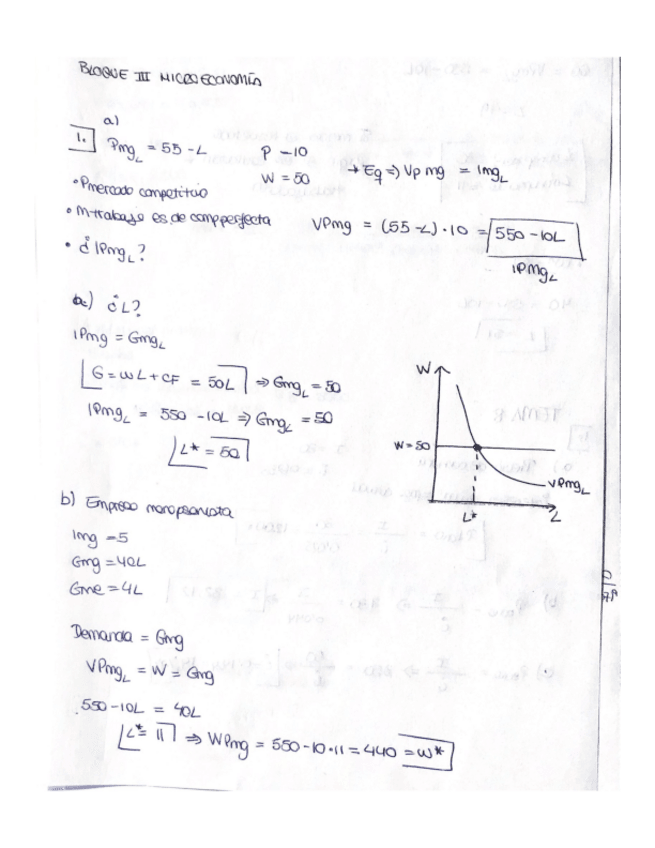 BLOQUE III MICROECONOMÍA
a)
1. PmgL = 55 - L P = 10
W = 50 → Eq ⇒ Vpmg = ImgL
• Pmercado competitivo
• M-trabajo es de comp perfecta VPmg = (55 - L) · 10 = 550 - 10L
• ¿IPmgL? IPMgL
a) ¿L?
IPmg = GmgL
G = wL + CF = 50L ⇒ GmgL = 50
IPmgL = 550 - 10L ⇒ GmgL = 50
L* = 50
W
W = 50
VPmgL
L* L
b) Empresa monopsonista
Img = 5
Gmg = 40L
Gme = 4L
Demanda = Gmg
VPmgL = W = Gmg
550 - 10L = 40L
L* = 11 ⇒ WPmg = 550 - 10 · 11 = 440 = W*